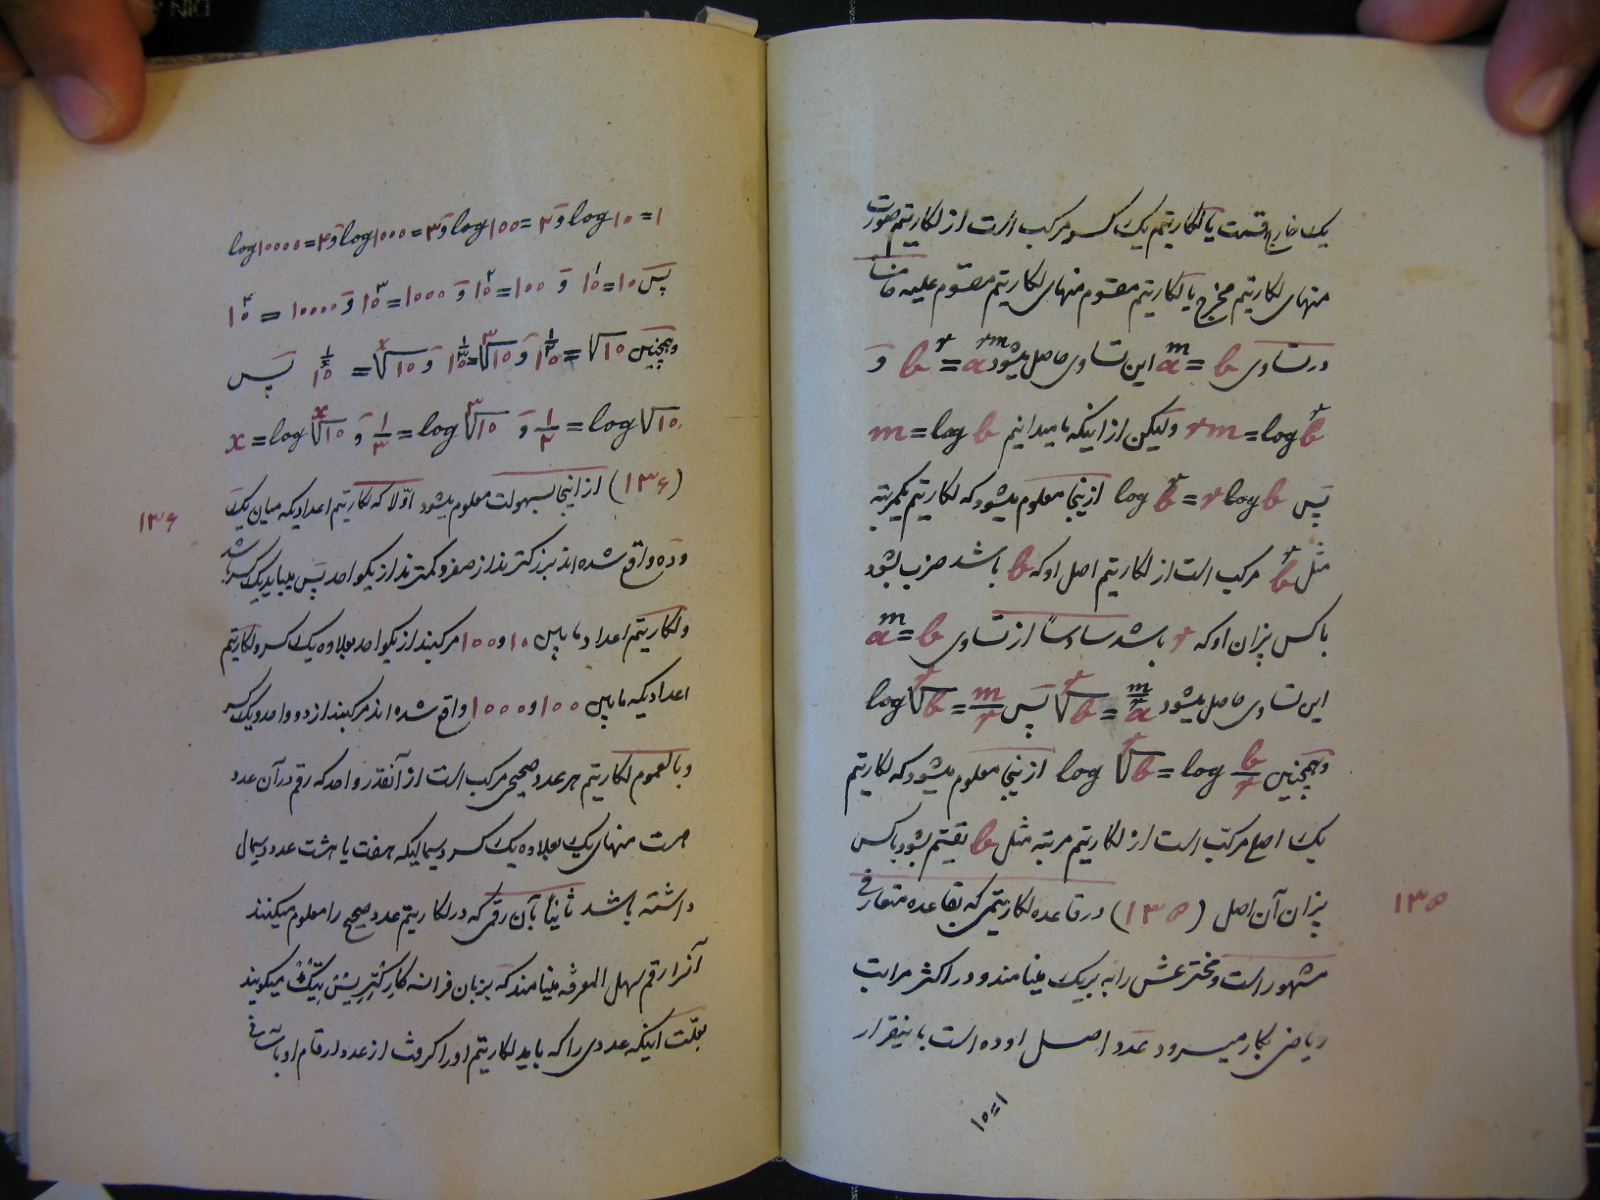 یک خارج قسمت یا لکاریتم یک کسر مرکب است از لکاریتم صورت
منهای لکاریتم مخرج یا لکاریتم مقسوم منهای لکاریتم مقسوم علیه
در تساوی a^m = b این تساوی حاصل میشود a^{rm} = b^r و
rm = log b^r ولیکن از اینکه ما میدانیم m = log b
پس log b^r = r log b ازینجا معلوم میشود که لکاریتم یکمرتبه
مثل b^r مرکب است از لکاریتم اصل او که b باشد ضرب بشود
با کس بزان او که r باشد از تساوی a^m = b
این تساوی حاصل میشود a^{m/r} = \sqrt[r]{b} پس m/r = log \sqrt[r]{b}
و همچنین log \sqrt[r]{b} = log b/r ازینجا معلوم میشود که لکاریتم
یک اصل مرکب است از لکاریتم مرتبه مثل b تقسیم بشود باکس
بزان آن اصل (۱۳۵) در قاعده لکاریتمی که بقاعده متعارفی
۱۳۵
مشهور است و مخترعش را به بریک مینامند و در اکثر مراتب
ریاضی بکار میرود عدد اصل او ده است باینقرار
۱۰=۱
log ۱۰ = ۱ و log ۱۰۰ = ۲ و log ۱۰۰۰ = ۳ و log ۱۰۰۰۰ = ۴
پس ۱۰^۱ = ۱۰ و ۱۰^۲ = ۱۰۰ و ۱۰^۳ = ۱۰۰۰ و ۱۰^۴ = ۱۰۰۰۰
و همچنین ۱۰^{۱/۲} = √۱۰ و ۱۰^{۱/۳} = \sqrt[۳]{۱۰} و \sqrt[x]{۱۰} = پس
۱/۲ = log √۱۰ و ۱/۳ = log \sqrt[۳]{۱۰} و x = log \sqrt[x]{۱۰}
(۱۳۶) از اینجا بسهولت معلوم میشود اولا که لکاریتم اعدادیکه میان یک
۱۳۶
و ده واقع شده اند بزرکترند از صفر و کمترند از یکواحد پس میباید یک کسر باشد
و لکاریتم اعداد مابین ۱۰ و ۱۰۰ مرکبند از یکواحد بعلاوه یک کسر و لکاریتم
اعدادیکه مابین ۱۰۰ و ۱۰۰۰ واقع شده اند مرکبند از دو واحد و یک کسر
و بالعموم لکاریتم هر عدد صحیحی مرکب است از آنقدر واحد که رقم در آن عدد
است منهای یک بعلاوه یک کسر دسیمالیکه هفت یا هشت عدد دسیمال
داشته باشد ثانیا بآن رقمی که در لکاریتم عدد صحیح را معلوم میکنند
آنرا رقم سهل المعرفه مینامند که بزبان فرانسه کارکتریس‌تیک میکویند
بعلت اینکه عددی را که باید لکاریتم او را کرفت از عدد ارقام او